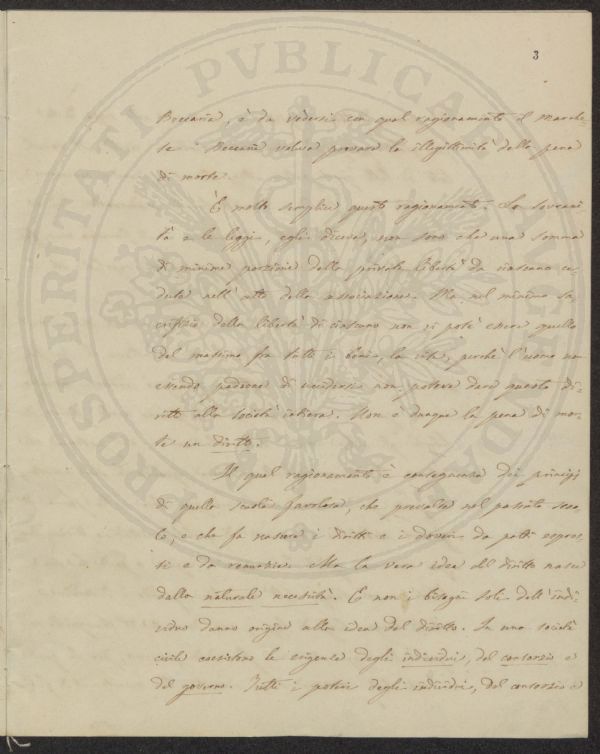 3
Beccaria, è da vedersi con qual ragionamento il Marche-
se Beccaria voleva provare la illegittimità della pena
di morte.
È molto semplice questo ragionamento. La sovrani-
tà e le leggi, egli diceva, non sono che una somma
di minime porzioni della privata libertà da ciascuno ce-
duta nell'atto della associazione. Ma nel minimo sa-
crifizio della libertà di ciascuno non vi potè essere quello
del massimo fra tutti i beni, la vita, perchè l'uomo non
essendo padrone di uccidersi non poteva dare questo di-
ritto alla società intiera. Non è dunque la pena di mor-
te un diritto.
Il qual ragionamento è conseguenza dei principj
di quella scuola favolosa, che prevalse nel passato seco-
lo, e che fa nascere i diritti e i doveri da patti espres-
si e da rinunzie. Ma la vera idea del diritto nasce
dalla naturale necessità. E non i bisogni soli dell'indi-
viduo danno origine alla idea del diritto. In una società
civile coesistono le esigenze degli individui, del consorzio e
del governo. Tutti i poteri degli individui, del consorzio e
PROSPERITATI PVBLICAE